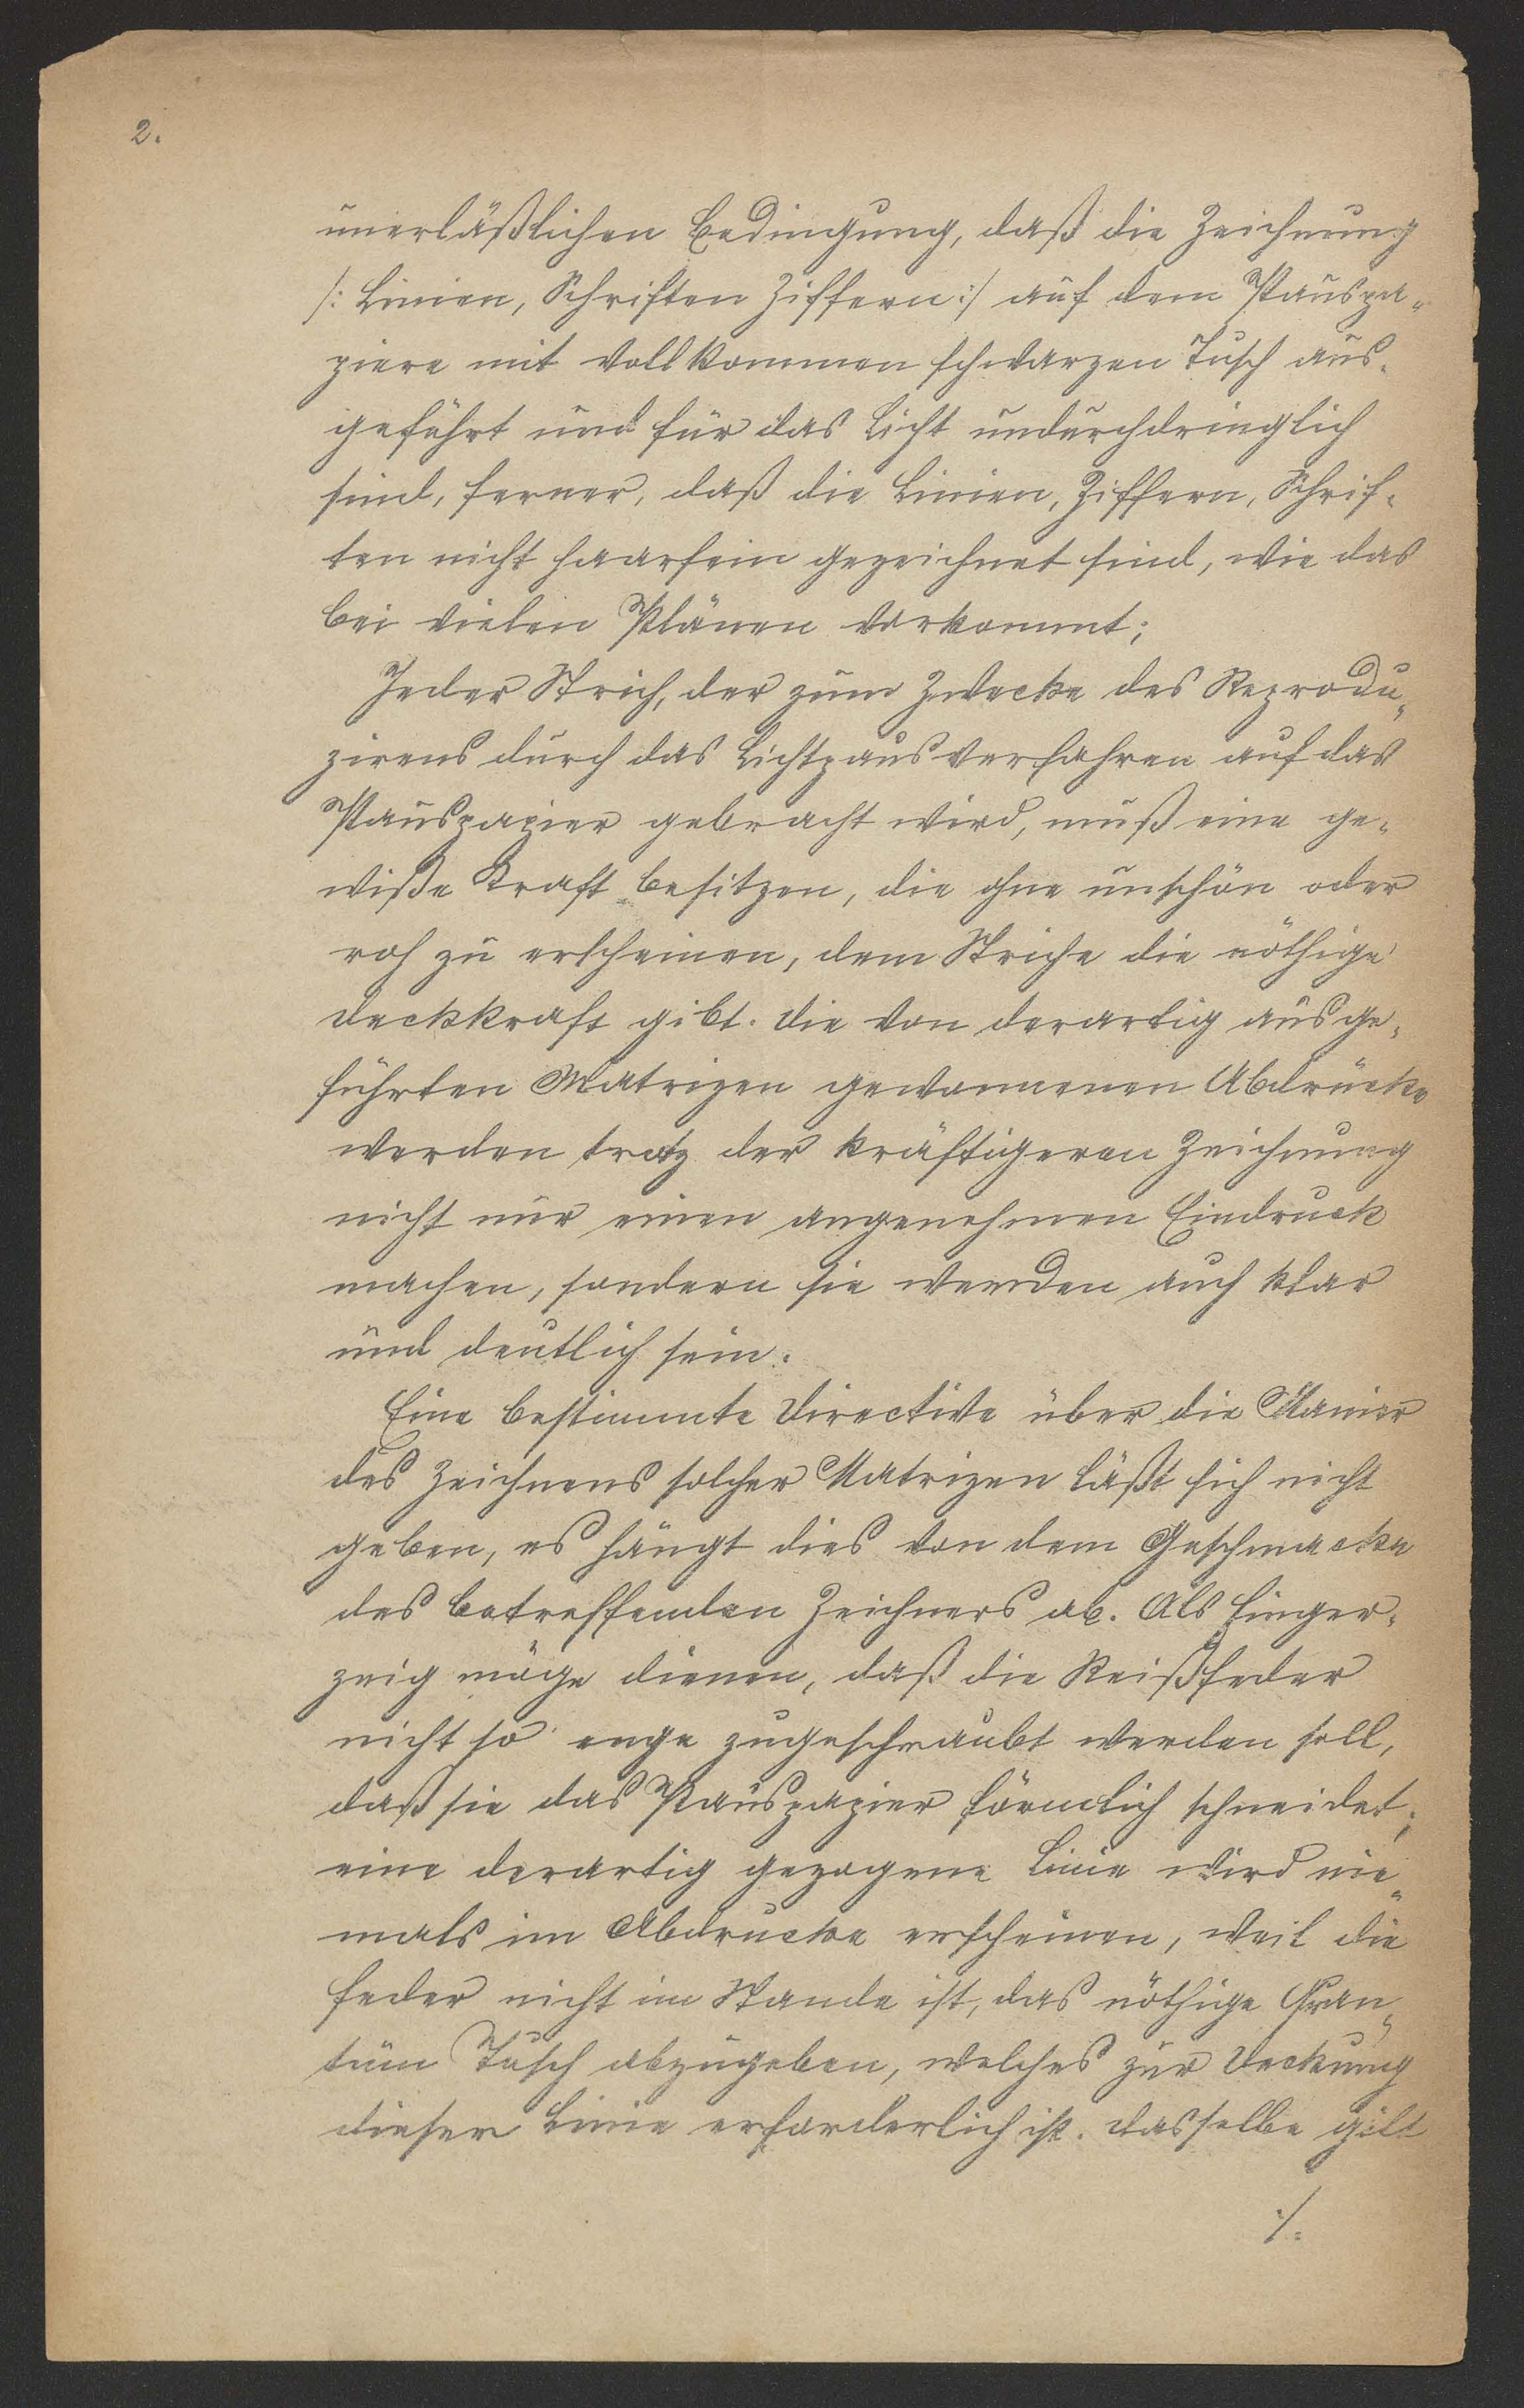 2.
unerläßlichen Bedingung, daß die Zeichnung
/: Linien, Schriften Ziffern :/ auf dem Pauspa-
piere mit vollkommen schwarzen Tusch aus-
geführt und für das Licht undurchdringlich
sind, ferner, daß die Linien, Ziffern, Schrif-
ten nicht haarfein gezeichnet sind, wie das
bei vielen Plänen vorkommt;
Jeder Strich, der zum Zwecke des Reprodu-
zirens durch das Lichtpausverfahren auf das
Pauspapier gebracht wird, muß eine ge-
wiße Kraft besitzen, die ohne unschön oder
roh zu erscheinen, dem Striche die nöthige
Deckkraft gibt. Die von derartig ausge-
führten Matrizen gewonnenen Abdrücke
werden trotz der kräftigeren Zeichnung
nicht nur einen angenehmen Eindruck
machen, sondern sie werden auch klar
und deutlich sein.
Eine bestimmte Directive über die Manier
des Zeichnens solcher Matrizen läßt sich nicht
geben, es hängt dies von dem Geschmacke
des betreffenden Zeichners ab. Als Finger-
zeig möge dienen, daß die Reißfeder
nicht so enge zugeschraubt werden soll,
daß sie das Pauspapier förmlich schneidet;
eine derartig gezogene Linie wird nie-
mals im Abdrucke erscheinen, weil die
Feder nicht im Stande ist, das nöthige Quan-
tum Tusch abzugeben, welches zur Deckung
dieser Linie erforderlich ist. Dasselbe gilt
./.